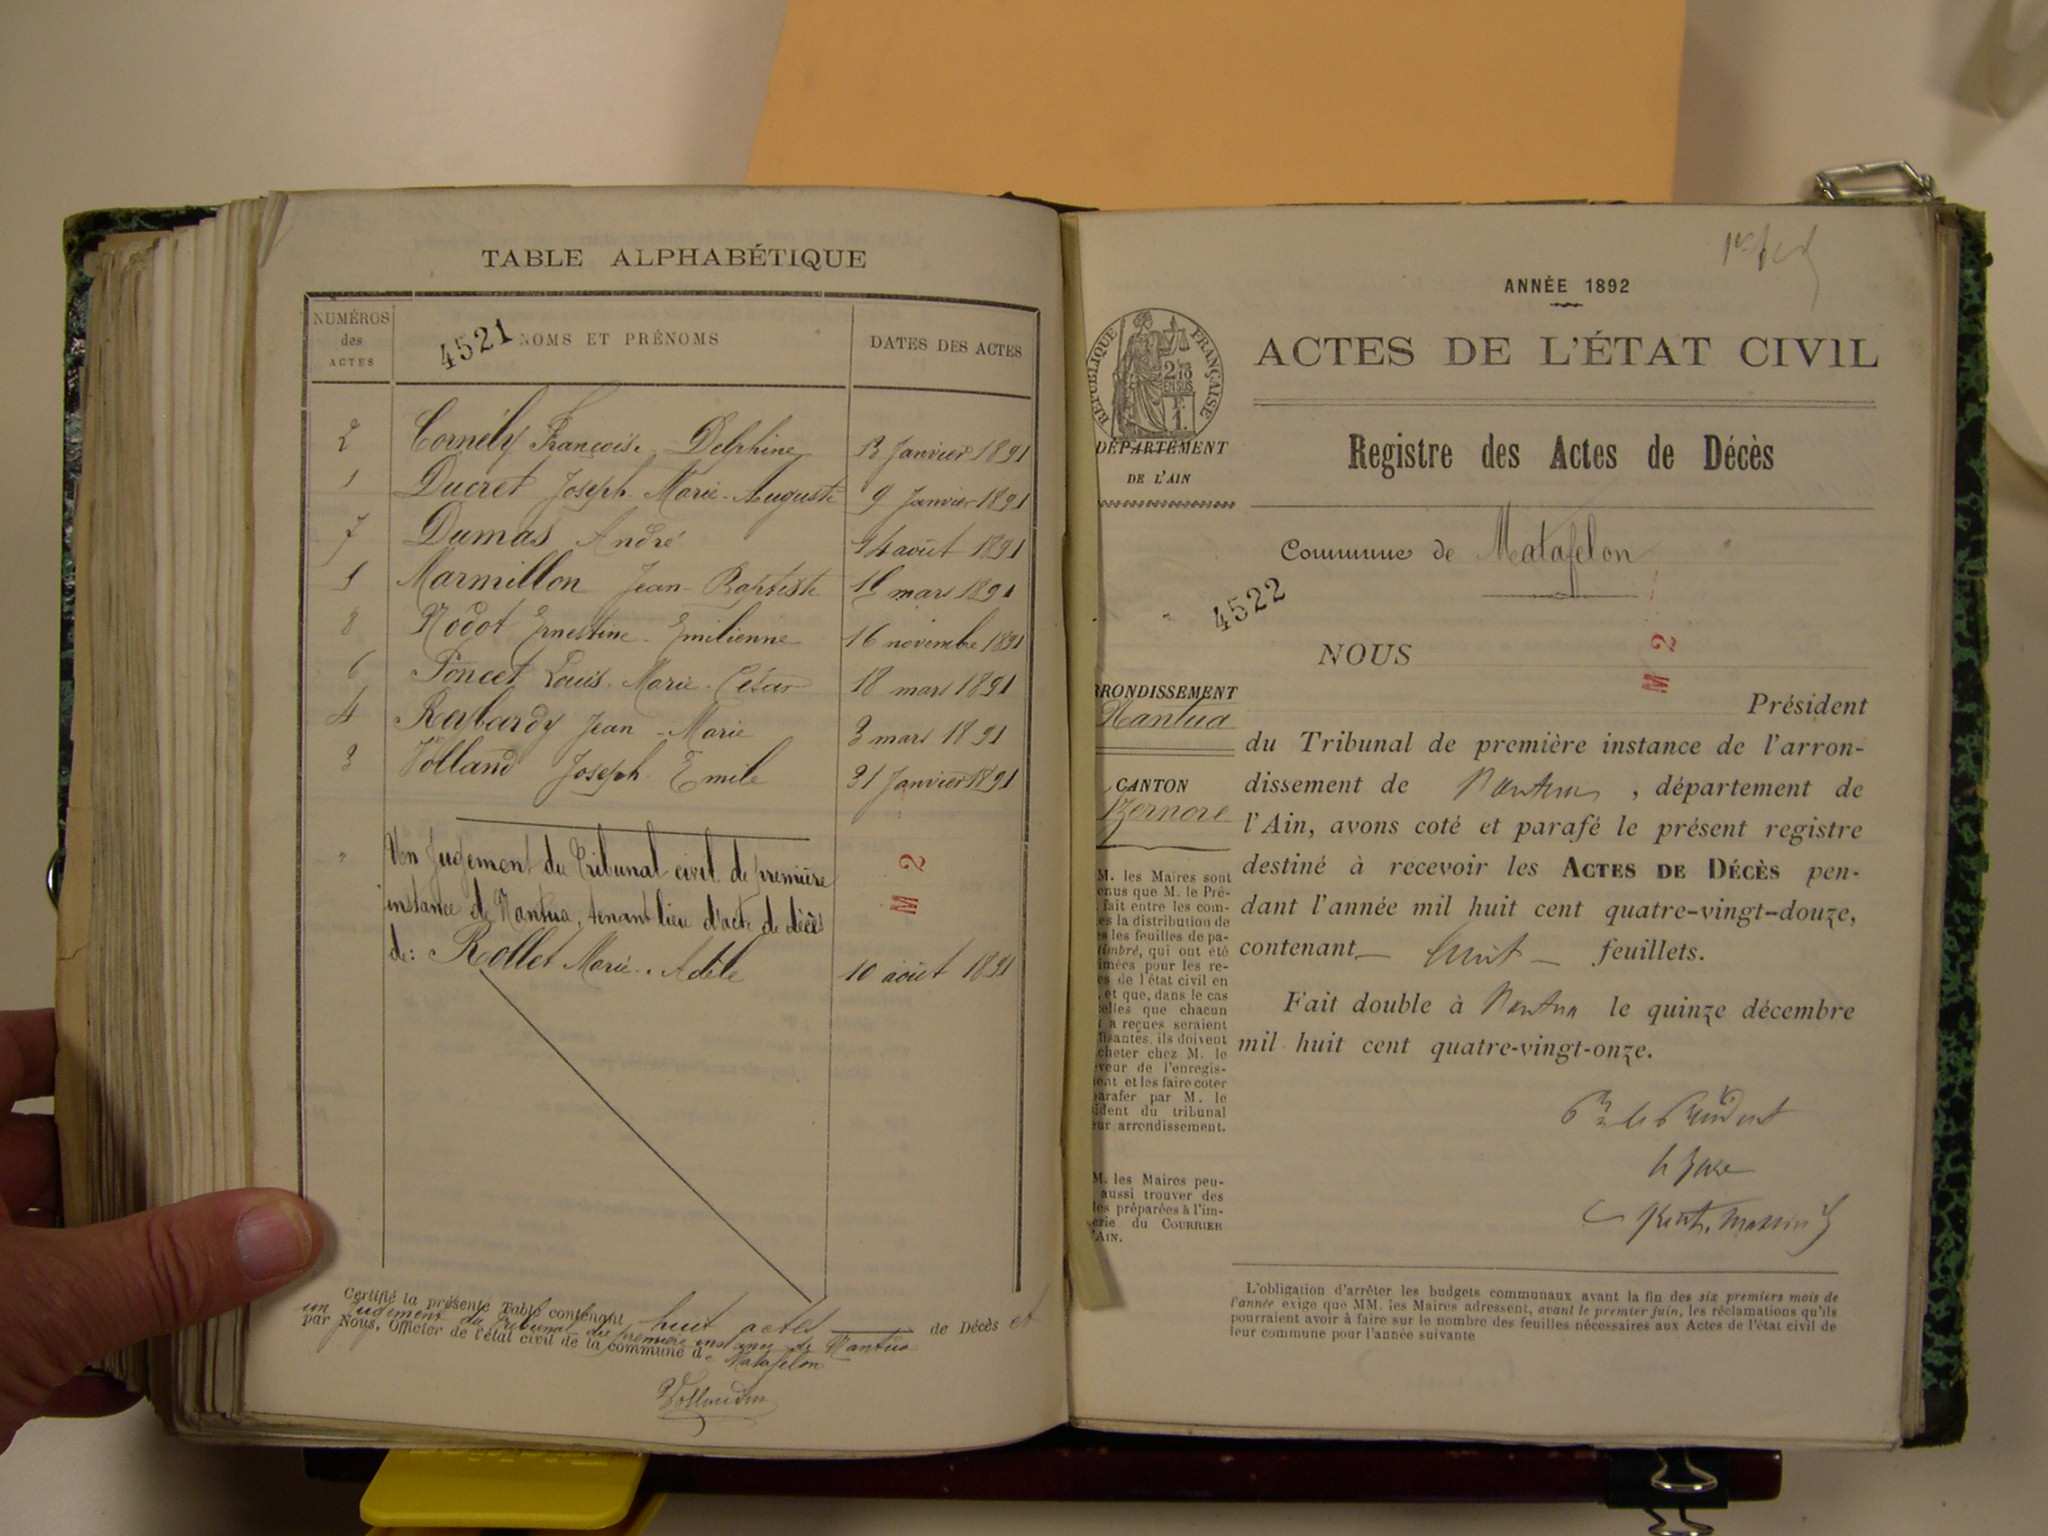 TABLE ALPHABÉTIQUE
NUMÉROS
des
ACTES
4521
NOMS ET PRÉNOMS
DATES DES ACTES
2 Cornély Françoise Delphine 13 Janvier 1891
1 Ducret Joseph Marie-Auguste 9 Janvier 1891
7 Dumas André août 1891
5 Marmillon Jean-Baptiste 16 mars 1891
8 Nodot Ernestine-Emilienne 16 novembre 1891
6 Poncet Louis-Marie-César 18 mars 1891
4 Rabardy Jean-Marie 3 mars 1891
3 Volland Joseph Emile 21 Janvier 1891
" Un Jugement du Tribunal civil de première
instance de Nantua, tenant lieu d'acte de décès
de: Rollet Marie-Adèle 10 août 1891
M 2
Certifié la présente Table contenant huit actes de Décès et
un Jugement du Tribunal de première instance de Nantua
par Nous, Officier de l'état civil de la commune de Matafelon
ANNÉE 1892
ACTES DE L'ÉTAT CIVIL
RÉPUBLIQUE FRANÇAISE
DÉPARTEMENT
DE L'AIN
Registre des Actes de Décès
Commune de Matafelon
4522
M 2
NOUS
RRONDISSEMENT
Nantua
CANTON
Izernore
Président
du Tribunal de première instance de l'arron-
dissement de Nantua, département de
l'Ain, avons coté et parafé le présent registre
destiné à recevoir les ACTES DE DÉCÈS pen-
dant l'année mil huit cent quatre-vingt-douze,
contenant — huit — feuillets.
Fait double à Nantua le quinze décembre
mil huit cent quatre-vingt-onze.
Pr le Président
le Juge
M. les Maires sont
enus que M. le Pré-
fait entre les com-
es la distribution de
s les feuilles de pa-
timbré, qui ont été
imées pour les re-
es de l'état civil en
, et que, dans le cas
elles que chacun
a reçues seraient
fisantes, ils doivent
cheter chez M. le
eveur de l'enregis-
ent et les faire coter
parafer par M. le
ident du tribunal
eur arrondissement.
M. les Maires peu-
aussi trouver des
les préparées à l'im-
erie du COURRIER
'AIN.
L'obligation d'arrêter les budgets communaux avant la fin des six premiers mois de
l'année exige que MM. les Maires adressent, avant le premier juin, les réclamations qu'ils
pourraient avoir à faire sur le nombre des feuilles nécessaires aux Actes de l'état civil de
leur commune pour l'année suivante